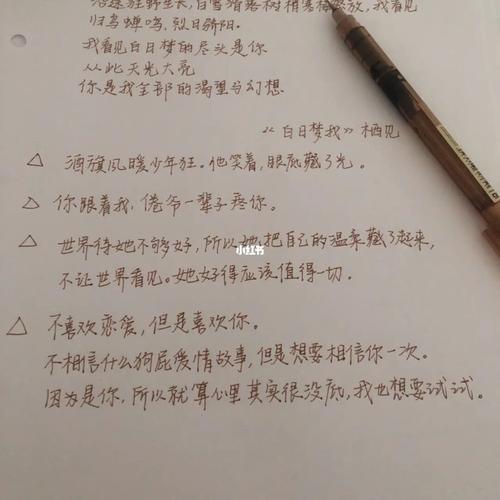 沿途狂野生长，白雪落满树梢
归鸟蝉鸣，烈日骄阳。
我看见白日梦的尽头是你
从此天光大亮
你是我全部的渴望与幻想
《白日梦我》栖见
△ 酒旗风暖少年狂。他笑着，眼底藏了光。
△ 你跟着我，倦爷一辈子疼你。
△ 世界待她不够好，所以她把自己的温柔藏了起来，
不让世界看见。她好得应该值得一切。
小红书
△ 不喜欢恋爱，但是喜欢你。
不相信什么狗屁爱情故事，但是想要相信你一次。
因为是你，所以就算心里其实很没底，我也想要试试。